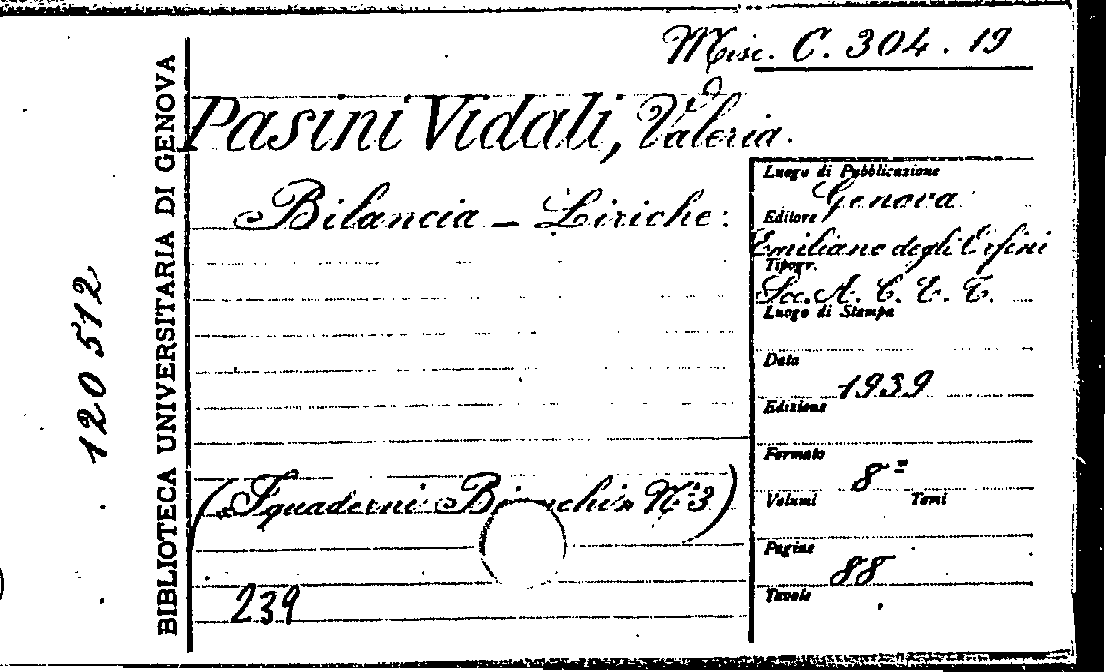 Misc. C. 304. 19
Pasini Vidali, Valeria.
Bilancia - Liriche:
(«I quaderni Bianchi» N.° 3)
239
Luogo di Pubblicazione
Genova
Editore
Emiliano degli Orfini
Tipogr.
Soc. A. C. E. T.
Luogo di Stampa
Data
1939
Edizione
Formato
8°
Volumi Tomi
Pagine
88
Tavole
BIBLIOTECA UNIVERSITARIA DI GENOVA
120 512